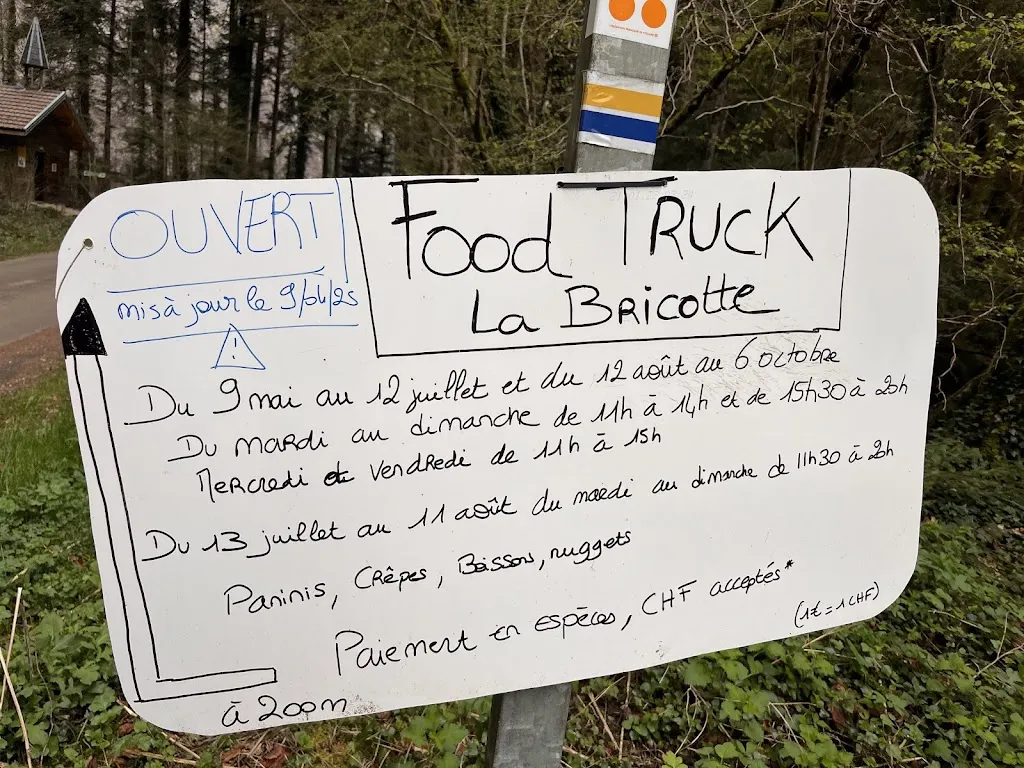 OUVERT
mis à jour le 9/04/25
!
FOOD TRUCK
La BRicotte
Du 9 mai au 12 juillet et du 12 août au 6 octobre
Du mardi au dimanche de 11h à 14h et de 15h30 à 20h
Mercredi et vendredi de 11h à 15h
Du 13 juillet au 11 août du mardi au dimanche de 11h30 à 20h
Paninis, Crêpes, Boissons, nuggets
Paiement en espèces, CHF acceptés*
(1€=1CHF)
à 200m